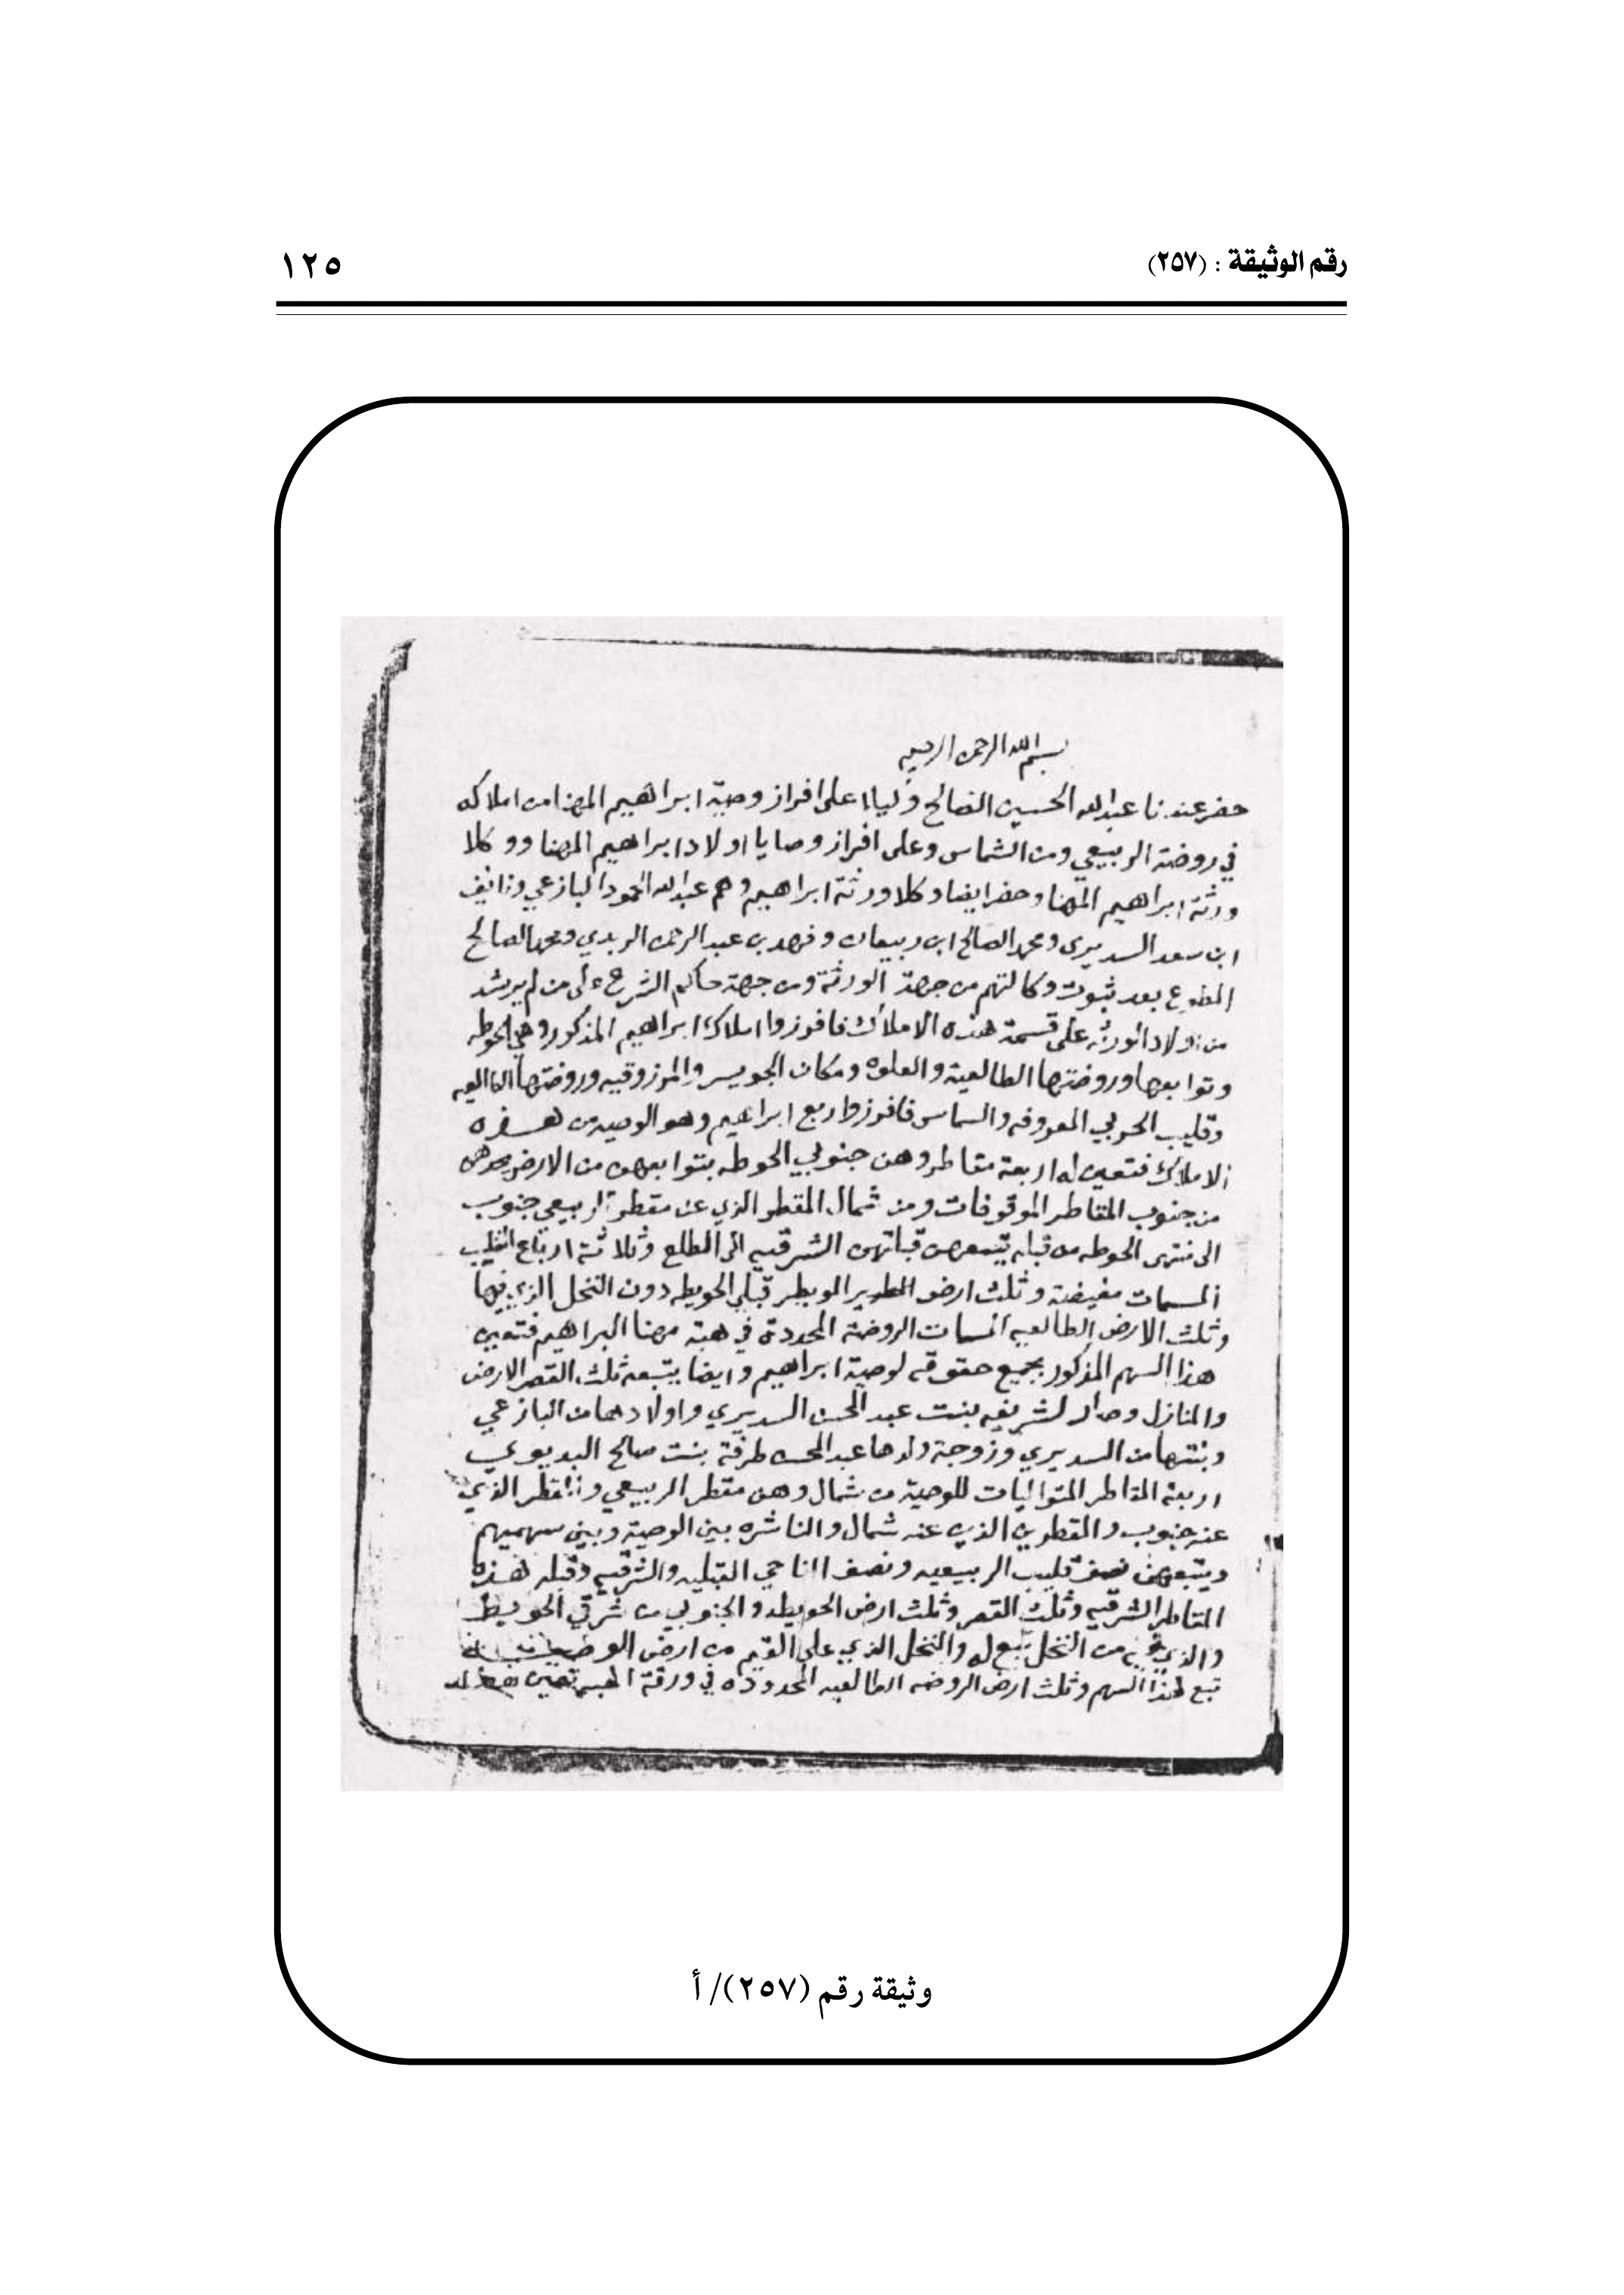 رقم الوثيقة : (٢٥٧)
١٢٥
بسم الله الرحمن الرحيم
حضر عندنا عبدالله الحسين الصالح وليا على افراز وصية ابراهيم المهنا من املاكه
في روضة الربيعي ومن الشماس وعلى افراز وصايا اولاد ابراهيم المهنا ووكلا
ورثة ابراهيم المهنا وحضر ايضا وكلا ورثة ابراهيم وهم عبدالله الحمود البازعي ونايف
ابن سعد السديري ومحمد الصالح ابن ربيعان وفهد بن عبد الرحمن الربدي ومحمد الصالح
المطوع بعد ثبوت وكالتهم من جهة الورثة ومن جهة حاكم الشرع على من لم يرشد
من اولاد الورثه على قسمة هذه الاملاك فافرزوا املاك ابراهيم المذكور وهي الحوطه
وتوابعها وروضتها الطالعية والعلوه ومكان الجويسر والمرزوقيه وروضتها الطالعيه
وقليب الحربي المعروفه والسماس فافرزوا ربع ابراهيم وهو الوصيه من هذه
الاملاك فتعين له اربعة مقاطر وهن جنوبي الحوطه بتوابعهن من الارض يحدهن
من جنوب المقاطر الموقوفات ومن شمال المقطر الذي عن مقطر الربيعي جنوب
الى منتهى الحوطه من قبله يتبعهن قبالتهن الشرقيه الى المطلع وثلاثة ارباع القليب
المسمات مفيضة وثلث ارض قبلي الحويطه دون النخل الذي فيها
وثلث الارض الطالعيه المسمات الروضة المحددة في هبة مهنا البراهيم فتعين
هذا السهم المذكور بجميع حقوقه لوصية ابراهيم وايضا يتبعه ثلث القصر الارض
والمنازل وصار لشريفه بنت عبد المحسن السديري واولادها من البازعي
وبنتها من السديري وزوجة ولدها عبدالمحسن طرفة بنت صالح البديوي
اربعة المقاطر المتواليات للوصية من شمال وهن مقطر الربيعي والمقطر الذي
عنه جنوب والمقطرين الذي عنه شمال والناشره بين الوصية وبين سهميهم
ويتبعهن نصف قليب الربيعيه ونصف المناحي القبليه والشرقيه وقبله هذه
المقاطر الشرقيه وثلث القصر وثلث ارض الحويطه والجنوبي من شرقي الحويط
والذي من النخل تبع له والنخل الذي على القيم من ارض
تبع لهذا السهم وثلث ارض الروضه الطالعيه المحدوده في ورقة تعين
وثيقة رقم (٢٥٧)/ أ